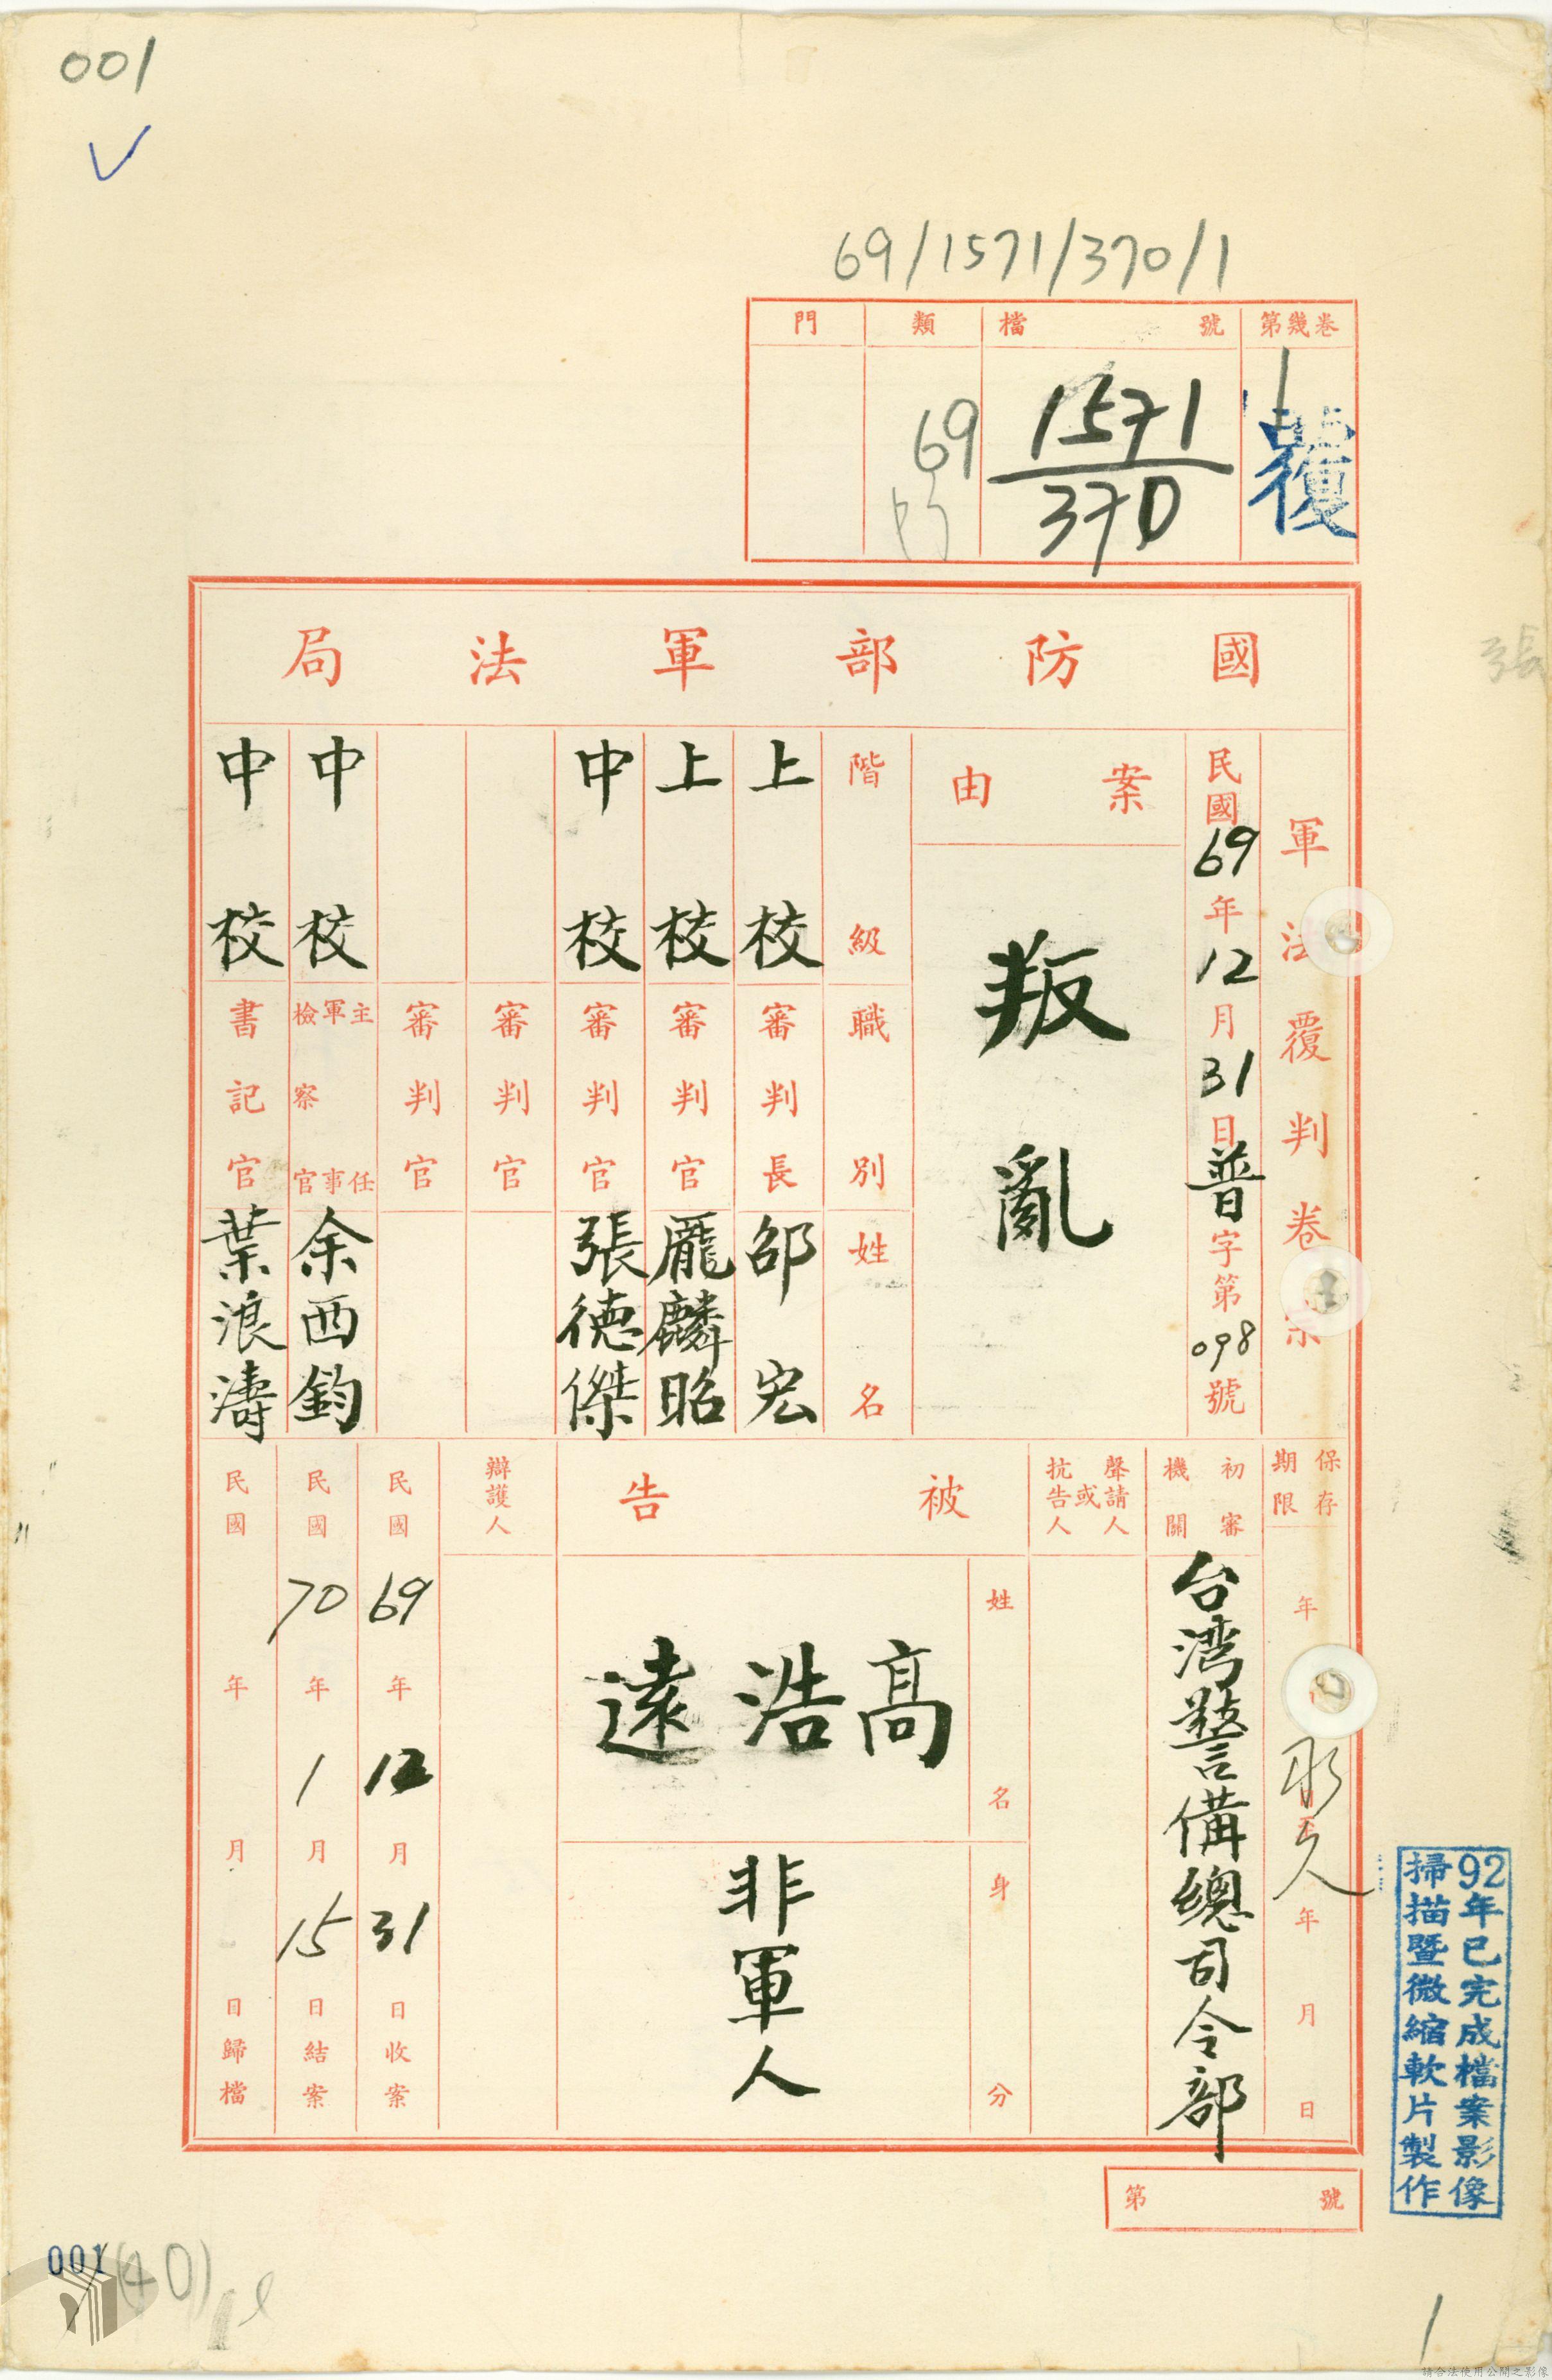 001
69/1571/370/1
第幾卷
1
覆
檔號
1571
370
類
69
門
國防部軍法局
軍法覆判卷宗
民國69年12月31日普字第098號
案由
叛亂
階級 職別 姓名
上校 審判長 邵宏
上校 審判官 龎麟昭
中校 審判官 張德傑
審判官
審判官
中校 主任軍事檢察官 余西鈞
中校 書記官 葉浪濤
保存期限
年
永久
年月日
初審機關
台湾警備總司令部
聲請人或抗告人
被告
姓名
高浩遠
身分
非軍人
辯護人
民國69年12月31日收案
民國70年1月15日結案
民國年月日歸檔
第號
92年已完成檔案影像
掃描暨微縮軟片製作
張
001
(40)
1
請合法使用公開之影像